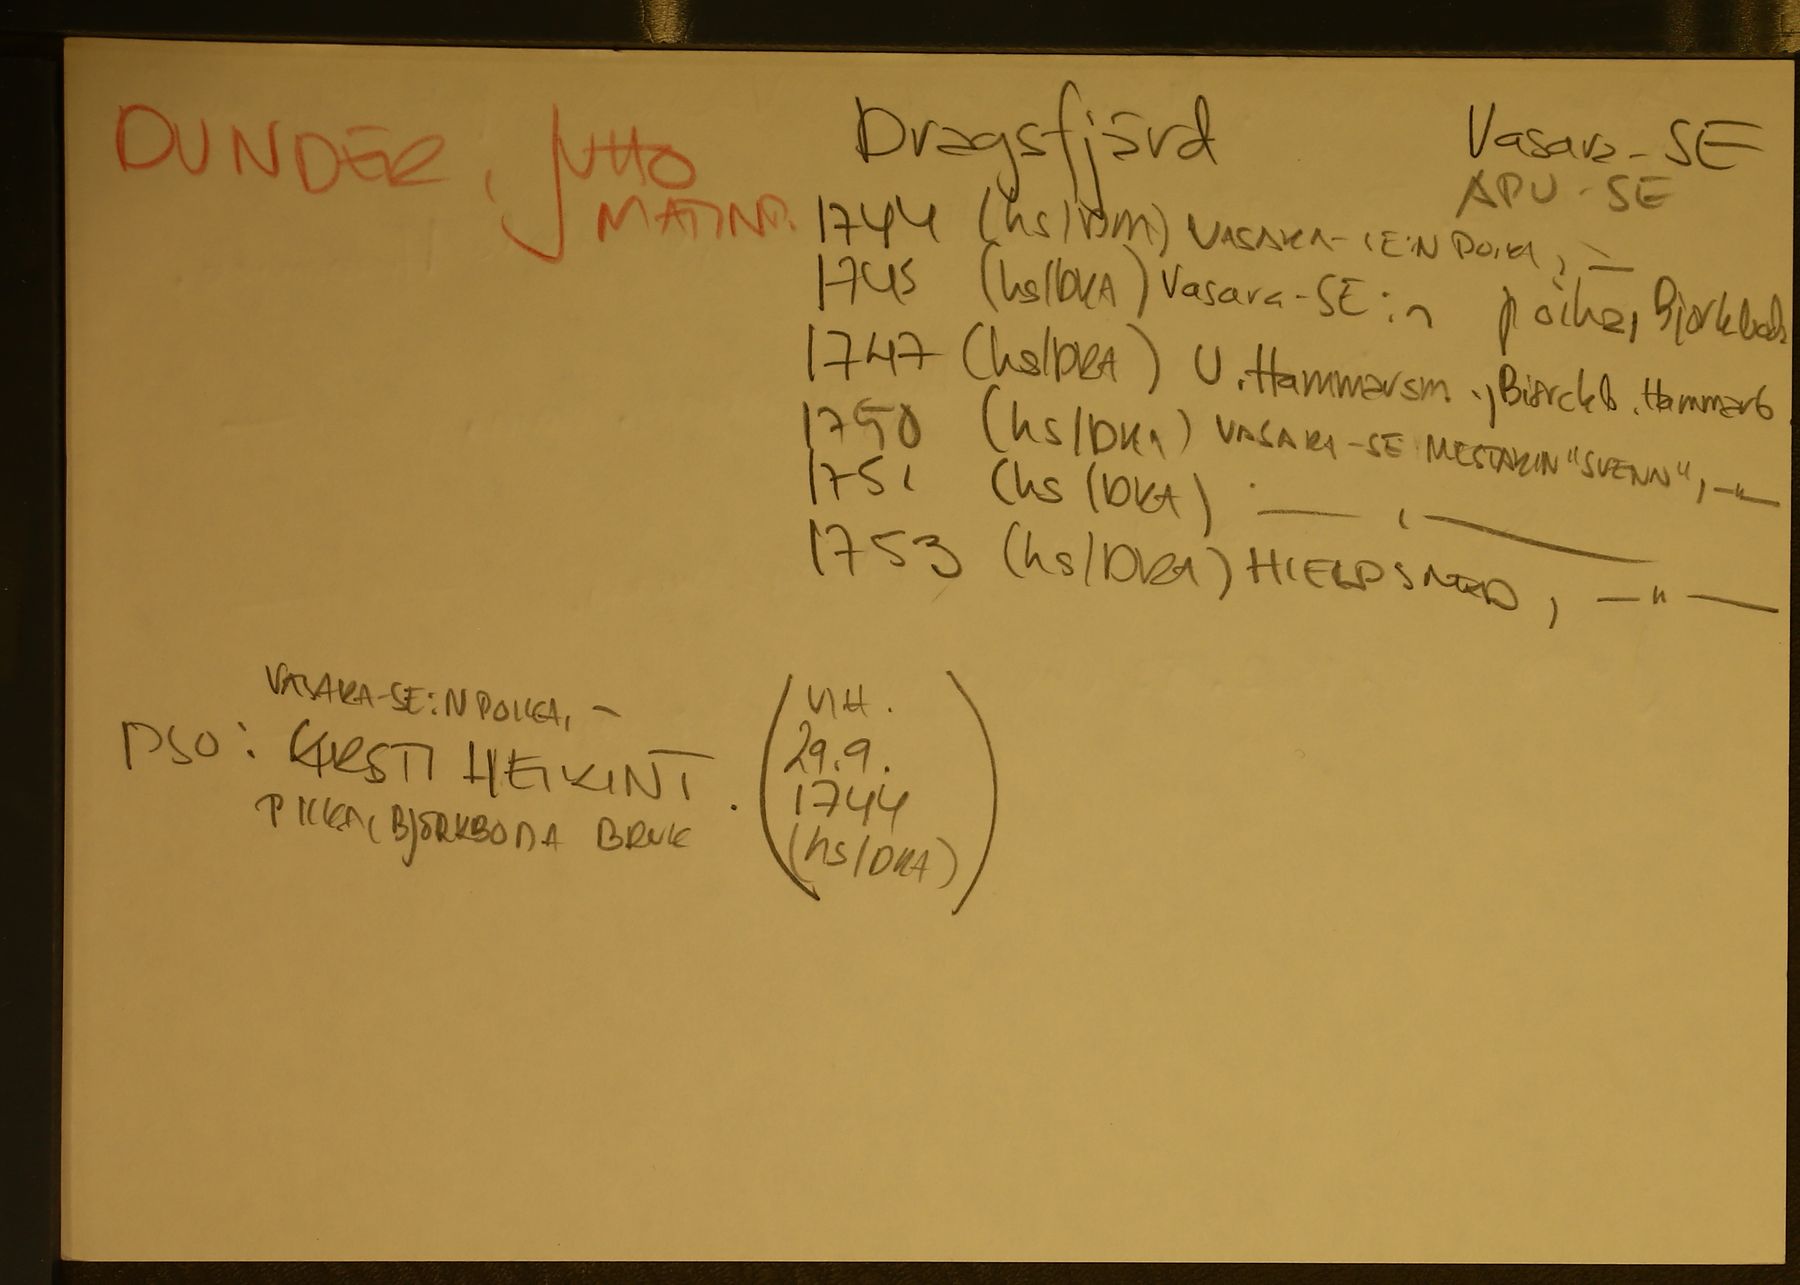 DUNDER, JUTTO
MATINP.
Dragsfjärd
Vasara-SE
APU-SE
1744 (hs/DKA) VASARA-SE:N POIKA, —
1745 (hs/DKA) Vasara-SE:n poika, Björkbod
1747 (hs/DKA) U. Hammarsm., Biörckb. Hammarb
1750 (hs/DKA) VASARA-SE MESTARIN "SVENN", —"—
1751 (hs/DKA) — , —
1753 (hs/DKA) HIELPSMED, —"—
VASARA-SE:N POIKA, —
PSO: KIRSTI HEIKINT.
PIIKA, BJÖRKBODA BRUK
(VIH.
29.9.
1744
(hs/DKA))